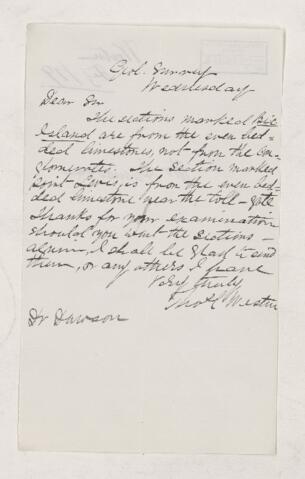 Geol. Survey
Wednesday
Dear Sir
The sections marked Bic
Island are from the even bed-
ded limestones, not from the con-
glomerates. The section marked
Point Levis, is from the even bed-
ded limestone near the toll-gate
Thanks for your examination
should you want the sections
again, I shall be glad to send
them, or any others I have
Very truly
Thos C Weston
Dr Dawson